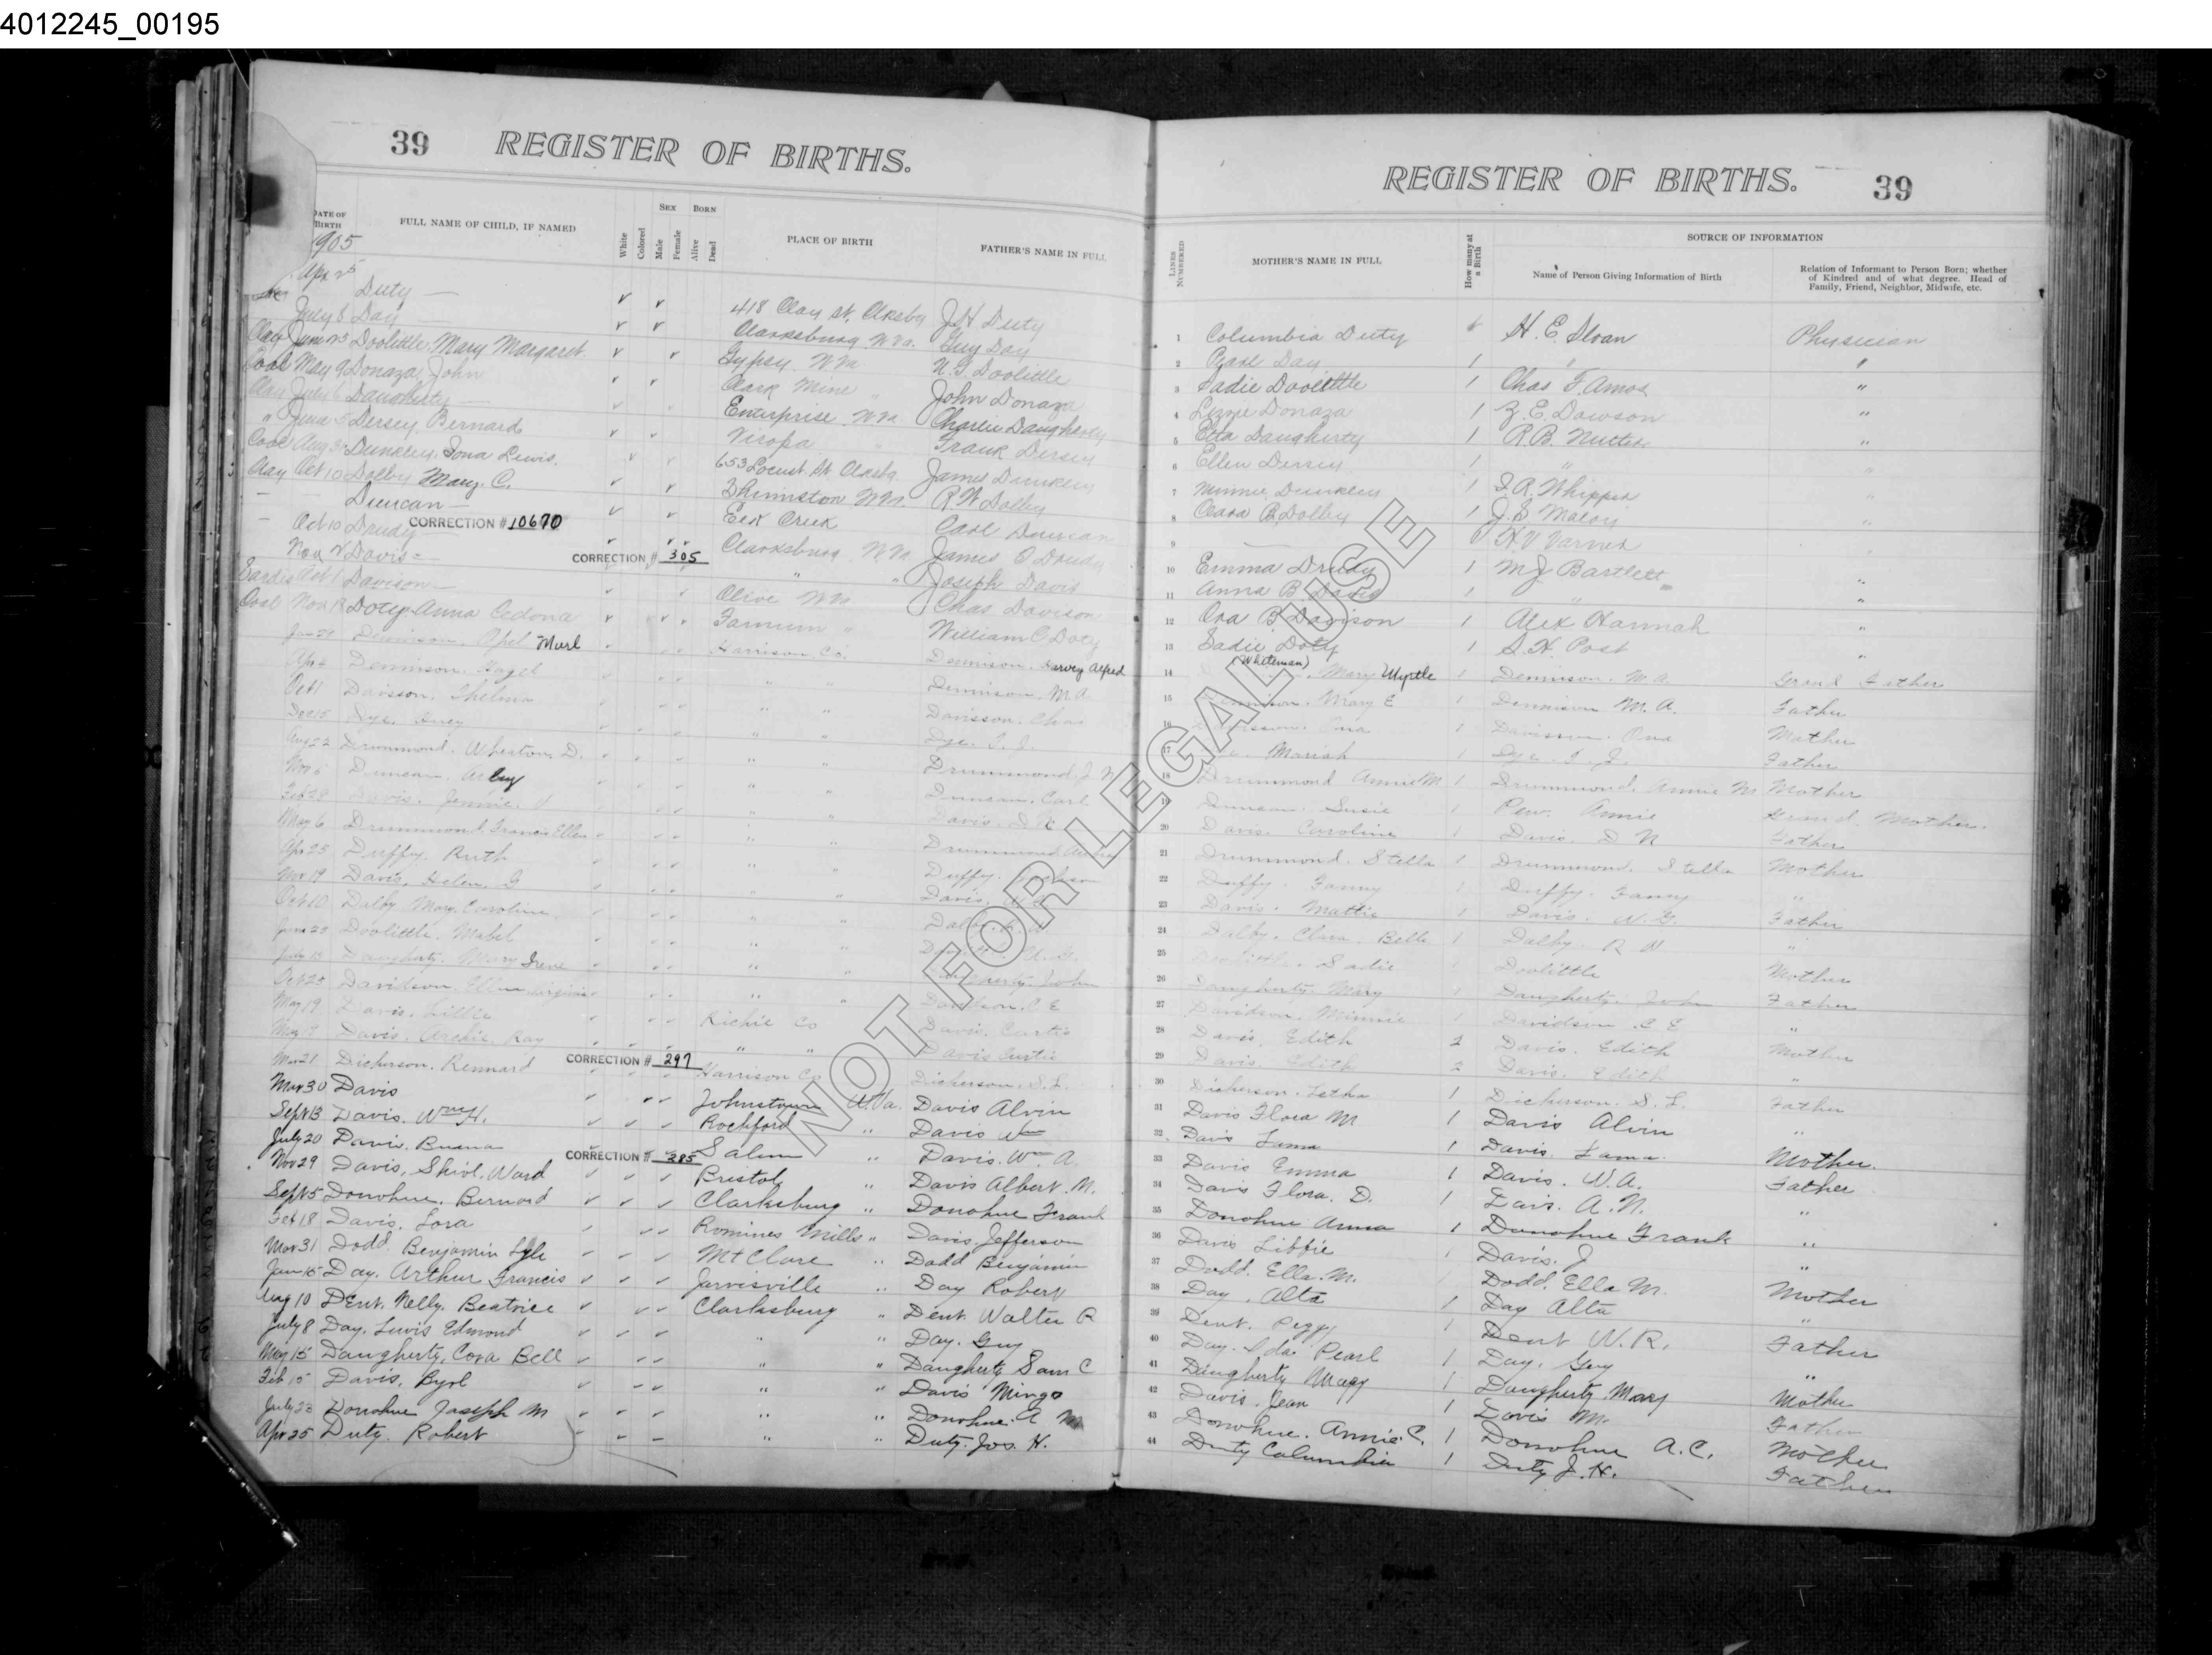 4012245_00195
39 REGISTER OF BIRTHS.
DATE OF BIRTH
1905
FULL NAME OF CHILD, IF NAMED
White
Colored
SEX
Male
Female
BORN
Alive
Dead
PLACE OF BIRTH
FATHER'S NAME IN FULL
Apr 25 Duty — 418 Clay St. Clksbg J.H. Duty
July 8 Day — Clarksburg W.Va. Guy Day
Clay June 23 Doolittle, Mary Margaret Gypsy W Va U.G. Doolittle
Coal May 9 Donaza, John Clark Mine " John Donaza
Clay July 6 Daugherty — Enterprise W Va Charlie Daugherty
" June 5 Dersey, Bernard Viropa Frank Dersey
Coal Aug 31 Dunkley, Lewis 653 Locust St Clksbg James Dunkley
Clay Oct 10 Dolby Mary C. Shinnston W Va. R W Dolby
Duncan — Eek Creek Carl Duncan
Oct 10 Drudy CORRECTION # 10670 Clarksburg W Va James O Drudy
Nov 2 Davis — CORRECTION # 305 " " Joseph Davis
Sardis Oct 1 Davison — Olive W Va Chas Davison
Coal Nov 18 Doty, Anna Cedona Farnum " William C Doty
Jan 21 Dennison, Opel Murl Harrison Co. Dennison, Harvey Alfred
Apr 2 Dennison, Hazel " " Dennison, M.A.
Oct 1 Davisson, Thelma " " Davisson, Chas
Dec 15 Dye, Huey " " Dye, T. J.
Aug 22 Drummond, Wheaton D. " " Drummond, J N
Nov 6 Duncan, " " Duncan, Carl
Feb 28 Davis, Jennie V " " Davis, D N
May 6 Drummond, Francis Ellen " " Drummond
Apr 25 Duffy, Ruth " " Duffy,
Nov 19 Davis, Helen G " " Davis, W G
Oct 10 Dalby, Mary Caroline " " Dalby, R W
June 23 Doolittle, Mabel " " U. G.
Daugherty, Mary Irene " " Daugherty, John
Oct 25 Davidson, Ellen Virginia " " Davidson, C E
May 19 Davis, Lillie Richie Co Davis, Curtis
May 19 Davis, Archie Ray " " Davis Curtis
Mar 21 Dickerson, Rennard CORRECTION # 297 Harrison Co Dickerson, S. L.
Mar 30 Davis Johnstown W.Va. Davis Alvin
Sept 13 Davis, Wm H. Rockford " Davis Wm
July 20 Davis, Buena CORRECTION # 285 Salem " Davis, Wm. A.
Nov 29 Davis, Shirl, Ward Bristol " Davis Albert. N.
Sept 5 Donohue, Bernard Clarksburg " Donohue Frank
Feb 18 Davis, Lora Romines Mills " Davis, Jefferson
Mar 31 Dodd, Benjamin Lyle Mt Clare " Dodd Benjamin
Jan 15 Day, Arthur Francis Jarvisville " Day Robert
Aug 10 Dent, Nelly, Beatrice Clarksburg " Dent Walter R
July 8 Day, Lewis Edmond " " Day, Guy
May 15 Daugherty, Cora Bell " " Daugherty Sam C
Feb 15 Davis, Byrl " " Davis Mingo
July 23 Donohue Joseph M " " Donohue. A M
Apr 25 Duty, Robert " " Duty, Jos. H.
REGISTER OF BIRTHS. 39
LINES NUMBERED
MOTHER'S NAME IN FULL
How many at a Birth
SOURCE OF INFORMATION
Name of Person Giving Information of Birth
Relation of Informant to Person Born; whether of Kindred and of what degree. Head of Family, Friend, Neighbor, Midwife, etc.
1 Columbia Duty H. E. Sloan Physician
2 Pearl Day 1 " "
3 Sadie Doolittle 1 Chas F. Amos "
4 Lizzie Donaza 1 Z. E. Dawson "
5 Etta Daugherty 1 R.B. Nutter "
6 Ellen Dersey 1 " "
7 Minnie Dunkley 1 F. A. Whipper "
8 Clara B. Dolby 1 J. S. Maloy "
9 — H. V. Varner "
10 Emma Drudy 1 M J Bartlett "
11 Anna B. Davis 1 " "
12 Ora B Davison 1 Alex Hannah "
13 Sadie Doty 1 S. H. Post "
(Whiteman)
14 Mary Myrtle 1 Dennison, M. A. Grand Father
15 Dennison, Mary E 1 Dennison M. A. Father
16 Davisson, Ona 1 Davisson, Ona Mother
17 Dye, Mariah 1 Dye, T. J. Father
18 Drummond Annie M. 1 Drummond, Annie M Mother
19 Duncan, Susie 1 Pew, Annie Grand Mother.
20 Davis, Caroline 1 Davis, D N Father
21 Drummond, Stella 1 Drummond, Stella Mother
22 Duffy, Fanny 1 Duffy, Fanny "
23 Davis, Mattie 1 Davis, W. G. Father
24 Dalby, Clara Belle 1 Dalby, R W "
25 Doolittle, Sadie 1 Doolittle Mother
26 Daugherty, Mary 1 Daugherty, John Father
27 Davidson, Minnie 1 Davidson, C E "
28 Davis, Edith 2 Davis, Edith Mother
29 Davis, Edith 2 Davis, Edith "
30 Dickerson, Letha 1 Dickerson, S. L. Father
31 Davis Flora M 1 Davis Alvin "
32 Davis Fama 1 Davis, Fama Mother.
33 Davis Emma 1 Davis, W. A. Father
34 Davis Flora, D. 1 Davis, A. N. "
35 Donohue Anna 1 Donohue Frank "
36 Davis Libbie 1 Davis, J "
37 Dodd, Ella M. Dodd, Ella M. Mother
38 Day, Alta 1 Day Alta "
39 Dent, Peggy 1 Dent W. R. Father
40 Day, Ida Pearl 1 Day, Guy "
41 Daugherty Mary 1 Daugherty Mary Mother
42 Davis, Jean 1 Davis M. Father
43 Donohue, Annie C. 1 Donohue A. C. Mother
44 Duty Columbia 1 Duty J. H. Father
NOT FOR LEGAL USE